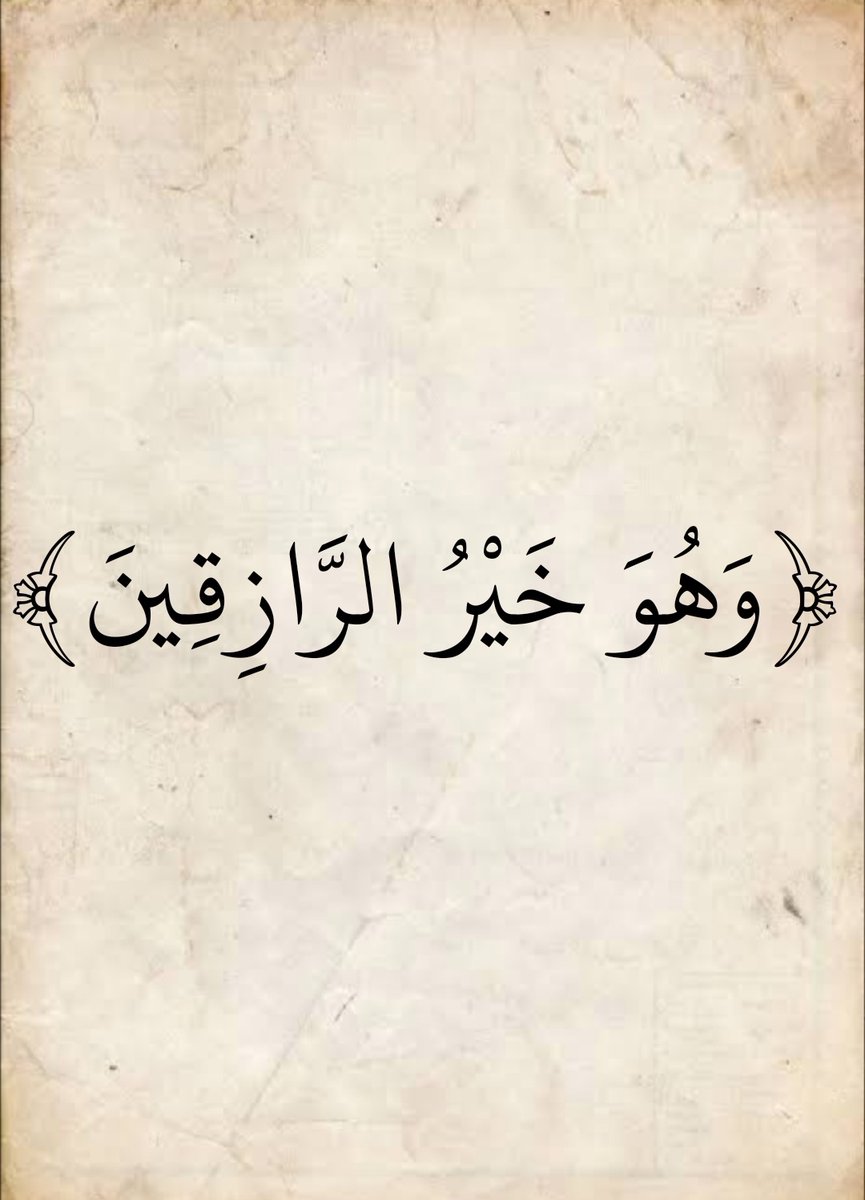 ﴿وَهُوَ خَيْرُ الرَّازِقِينَ﴾